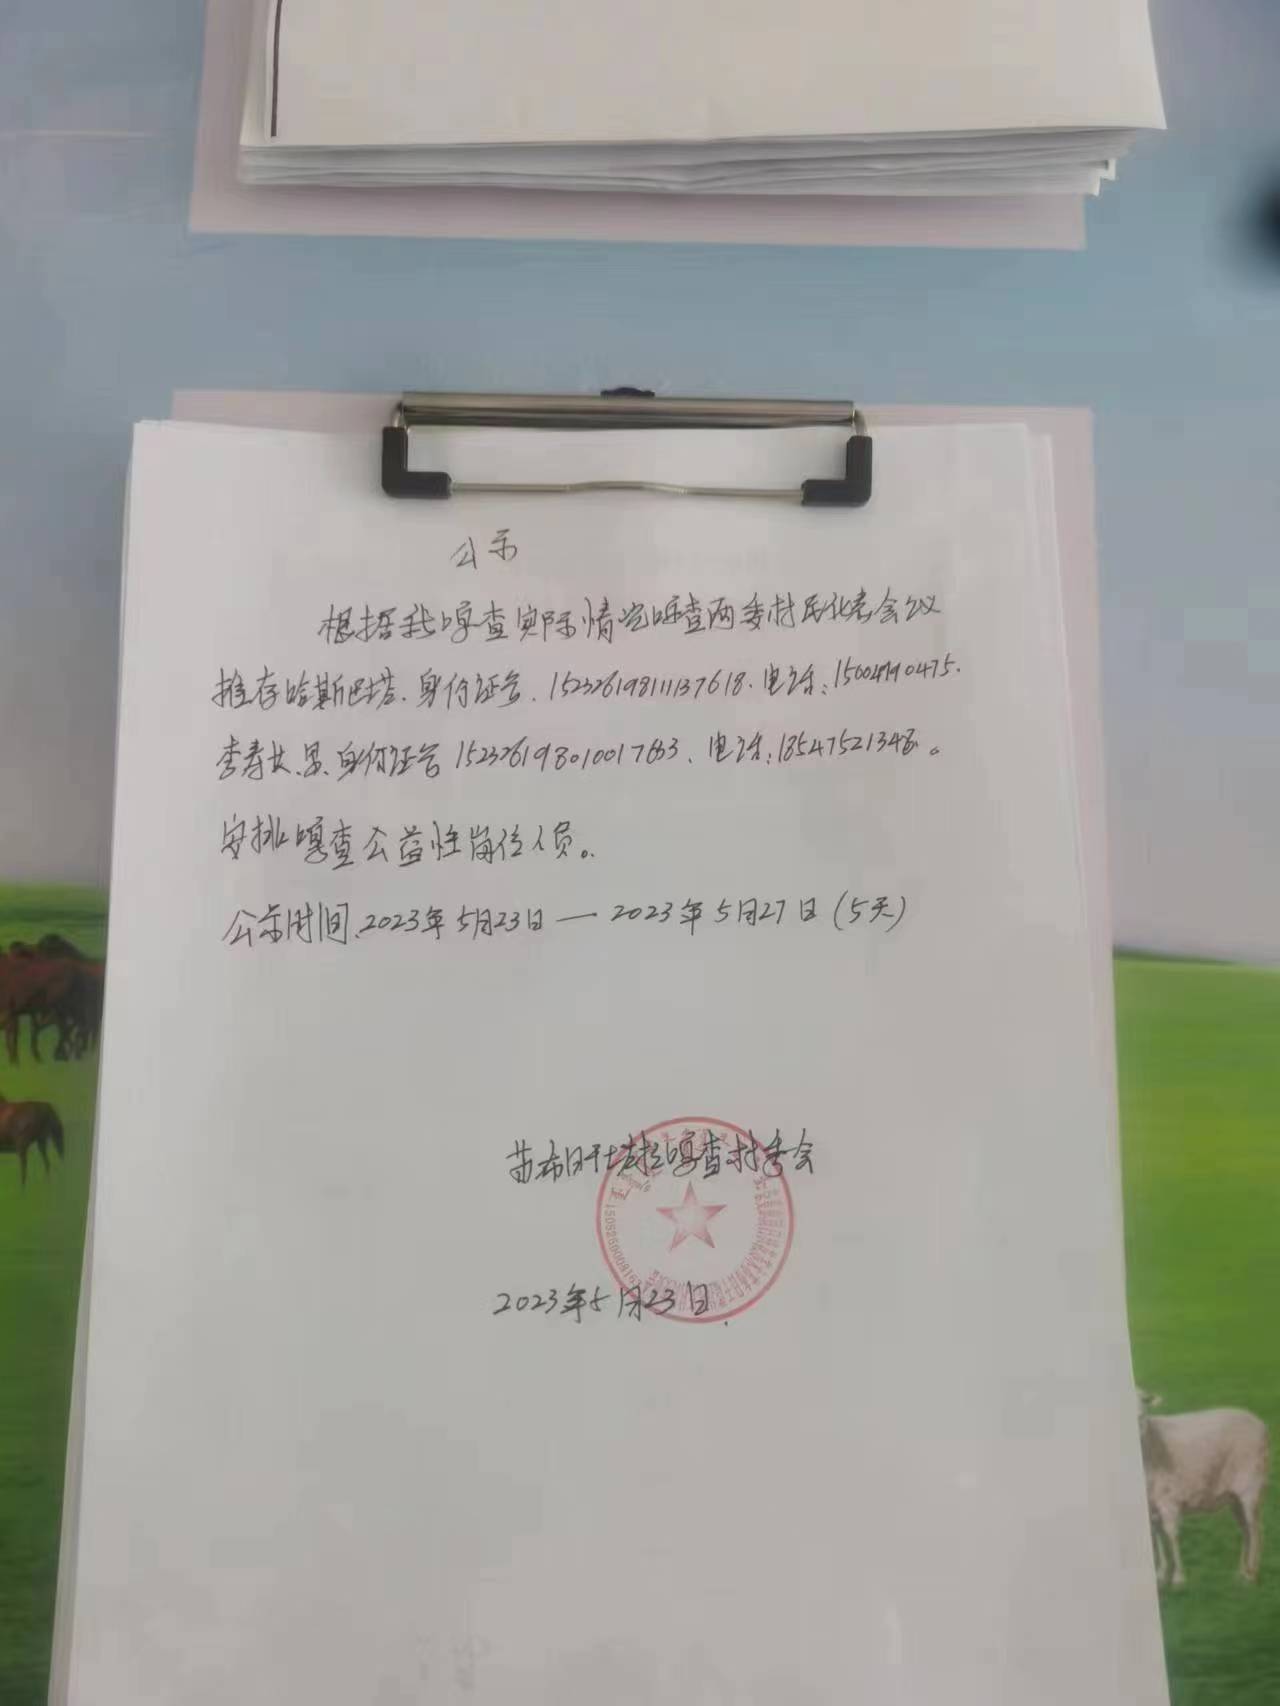 公示
根据我嘎查实际情况嘎查两委村民代表会议
推荐哈斯巴塔、身份证号、152326198111137618.电话:15004990475.
李寿 身份证号152326198010017663、电话:1854752134
安排嘎查公益性岗位人员。
公示时间、2023年5月23日—2023年5月27日(5天)
苗布日干塔拉嘎查村委会
2023年5月23日